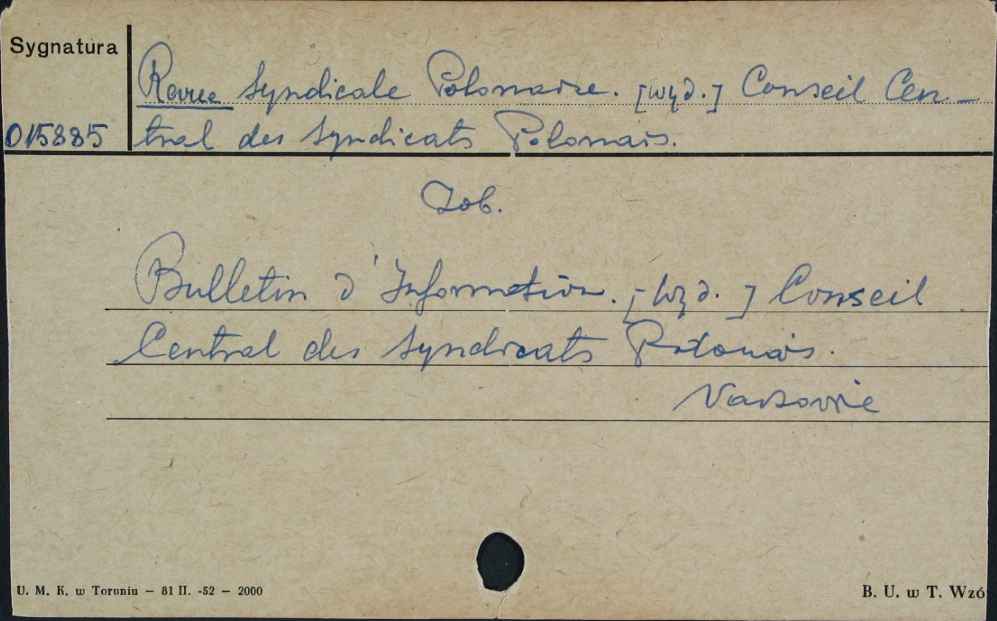 Sygnatura
Revue Syndicale Polonaise. [wyd.] Conseil Cen-
015885 tral des Syndicats Polonais.
Zob.
Bulletin d'Information. [Wyd.] Conseil
Central des Syndicats Polonais.
Varsovie
U. M. K. w Toruniu – 81 II. -52 – 2000 B. U. w T. Wzó